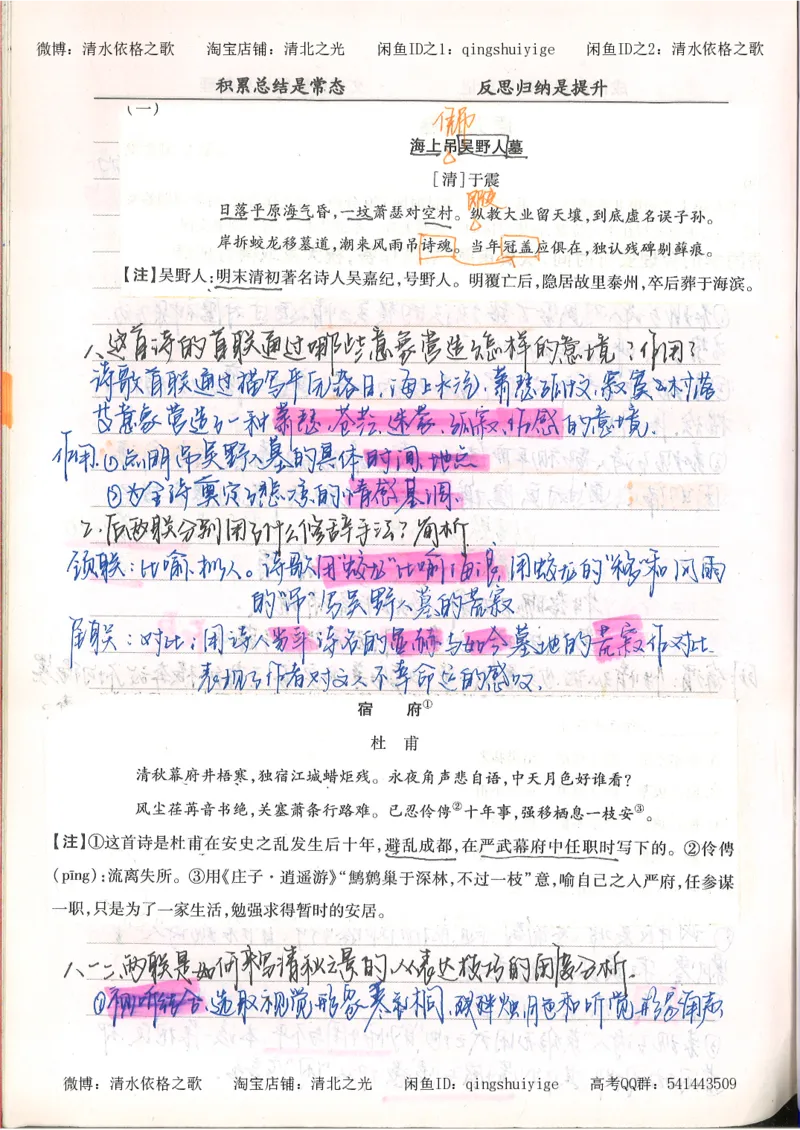 微博：清水依格之歌 淘宝店铺：清北之光 闲鱼ID之1：qingshuiyige 闲鱼ID之2：清水依格之歌
积累总结是常态 反思归纳是提升
(一)
凭吊
海上吊吴野人墓
[清]于震
即使
日落平原海气昏，一坟萧瑟对空村。纵教大业留天壤，到底虚名误子孙。
岸拆蛟龙移墓道，潮来风雨吊诗魂。当年冠盖应俱在，独认残碑剔藓痕。
【注】吴野人：明末清初著名诗人吴嘉纪，号野人。明覆亡后，隐居故里泰州，卒后葬于海滨。
1、这首诗的首联通过哪些意象营造了怎样的意境？作用？
诗歌首联通过描写平原落日、海上水汽、萧瑟孤坟、寂寞的村落
等意象营造了一种萧瑟、苍茫、迷蒙、孤寂、伤感的意境.
作用.①点明吊吴野人墓的具体时间、地点
②为全诗奠定了悲凉的情感基调.
2.后两联分别用了什么修辞手法？简析
颈联：比喻、拟人。诗歌用"蛟龙"比喻海浪，用蛟龙的"移"和风雨
的"吊"写吴野人墓的荒寂
尾联：对比：用诗人当年诗名的显赫与如今墓地的荒寂作对比.
表现了作者对文人不幸命运的感叹.
宿 府①
杜 甫
清秋幕府井梧寒，独宿江城蜡炬残。永夜角声悲自语，中天月色好谁看？
风尘荏苒音书绝，关塞萧条行路难。已忍伶俜②十年事，强移栖息一枝安③。
【注】①这首诗是杜甫在安史之乱发生后十年，避乱成都，在严武幕府中任职时写下的。②伶俜
(pīng)：流离失所。③用《庄子·逍遥游》"鹪鹩巢于深林，不过一枝"意，喻自己之入严府，任参谋
一职，只是为了一家生活，勉强求得暂时的安居。
1、一二两联是如何来写清秋之景的.从表达技巧的角度分析.
①视听结合，选取视觉形象 月色和听觉形象角声
微博：清水依格之歌 淘宝店铺：清北之光 闲鱼ID：qingshuiyige 高考QQ群：541443509